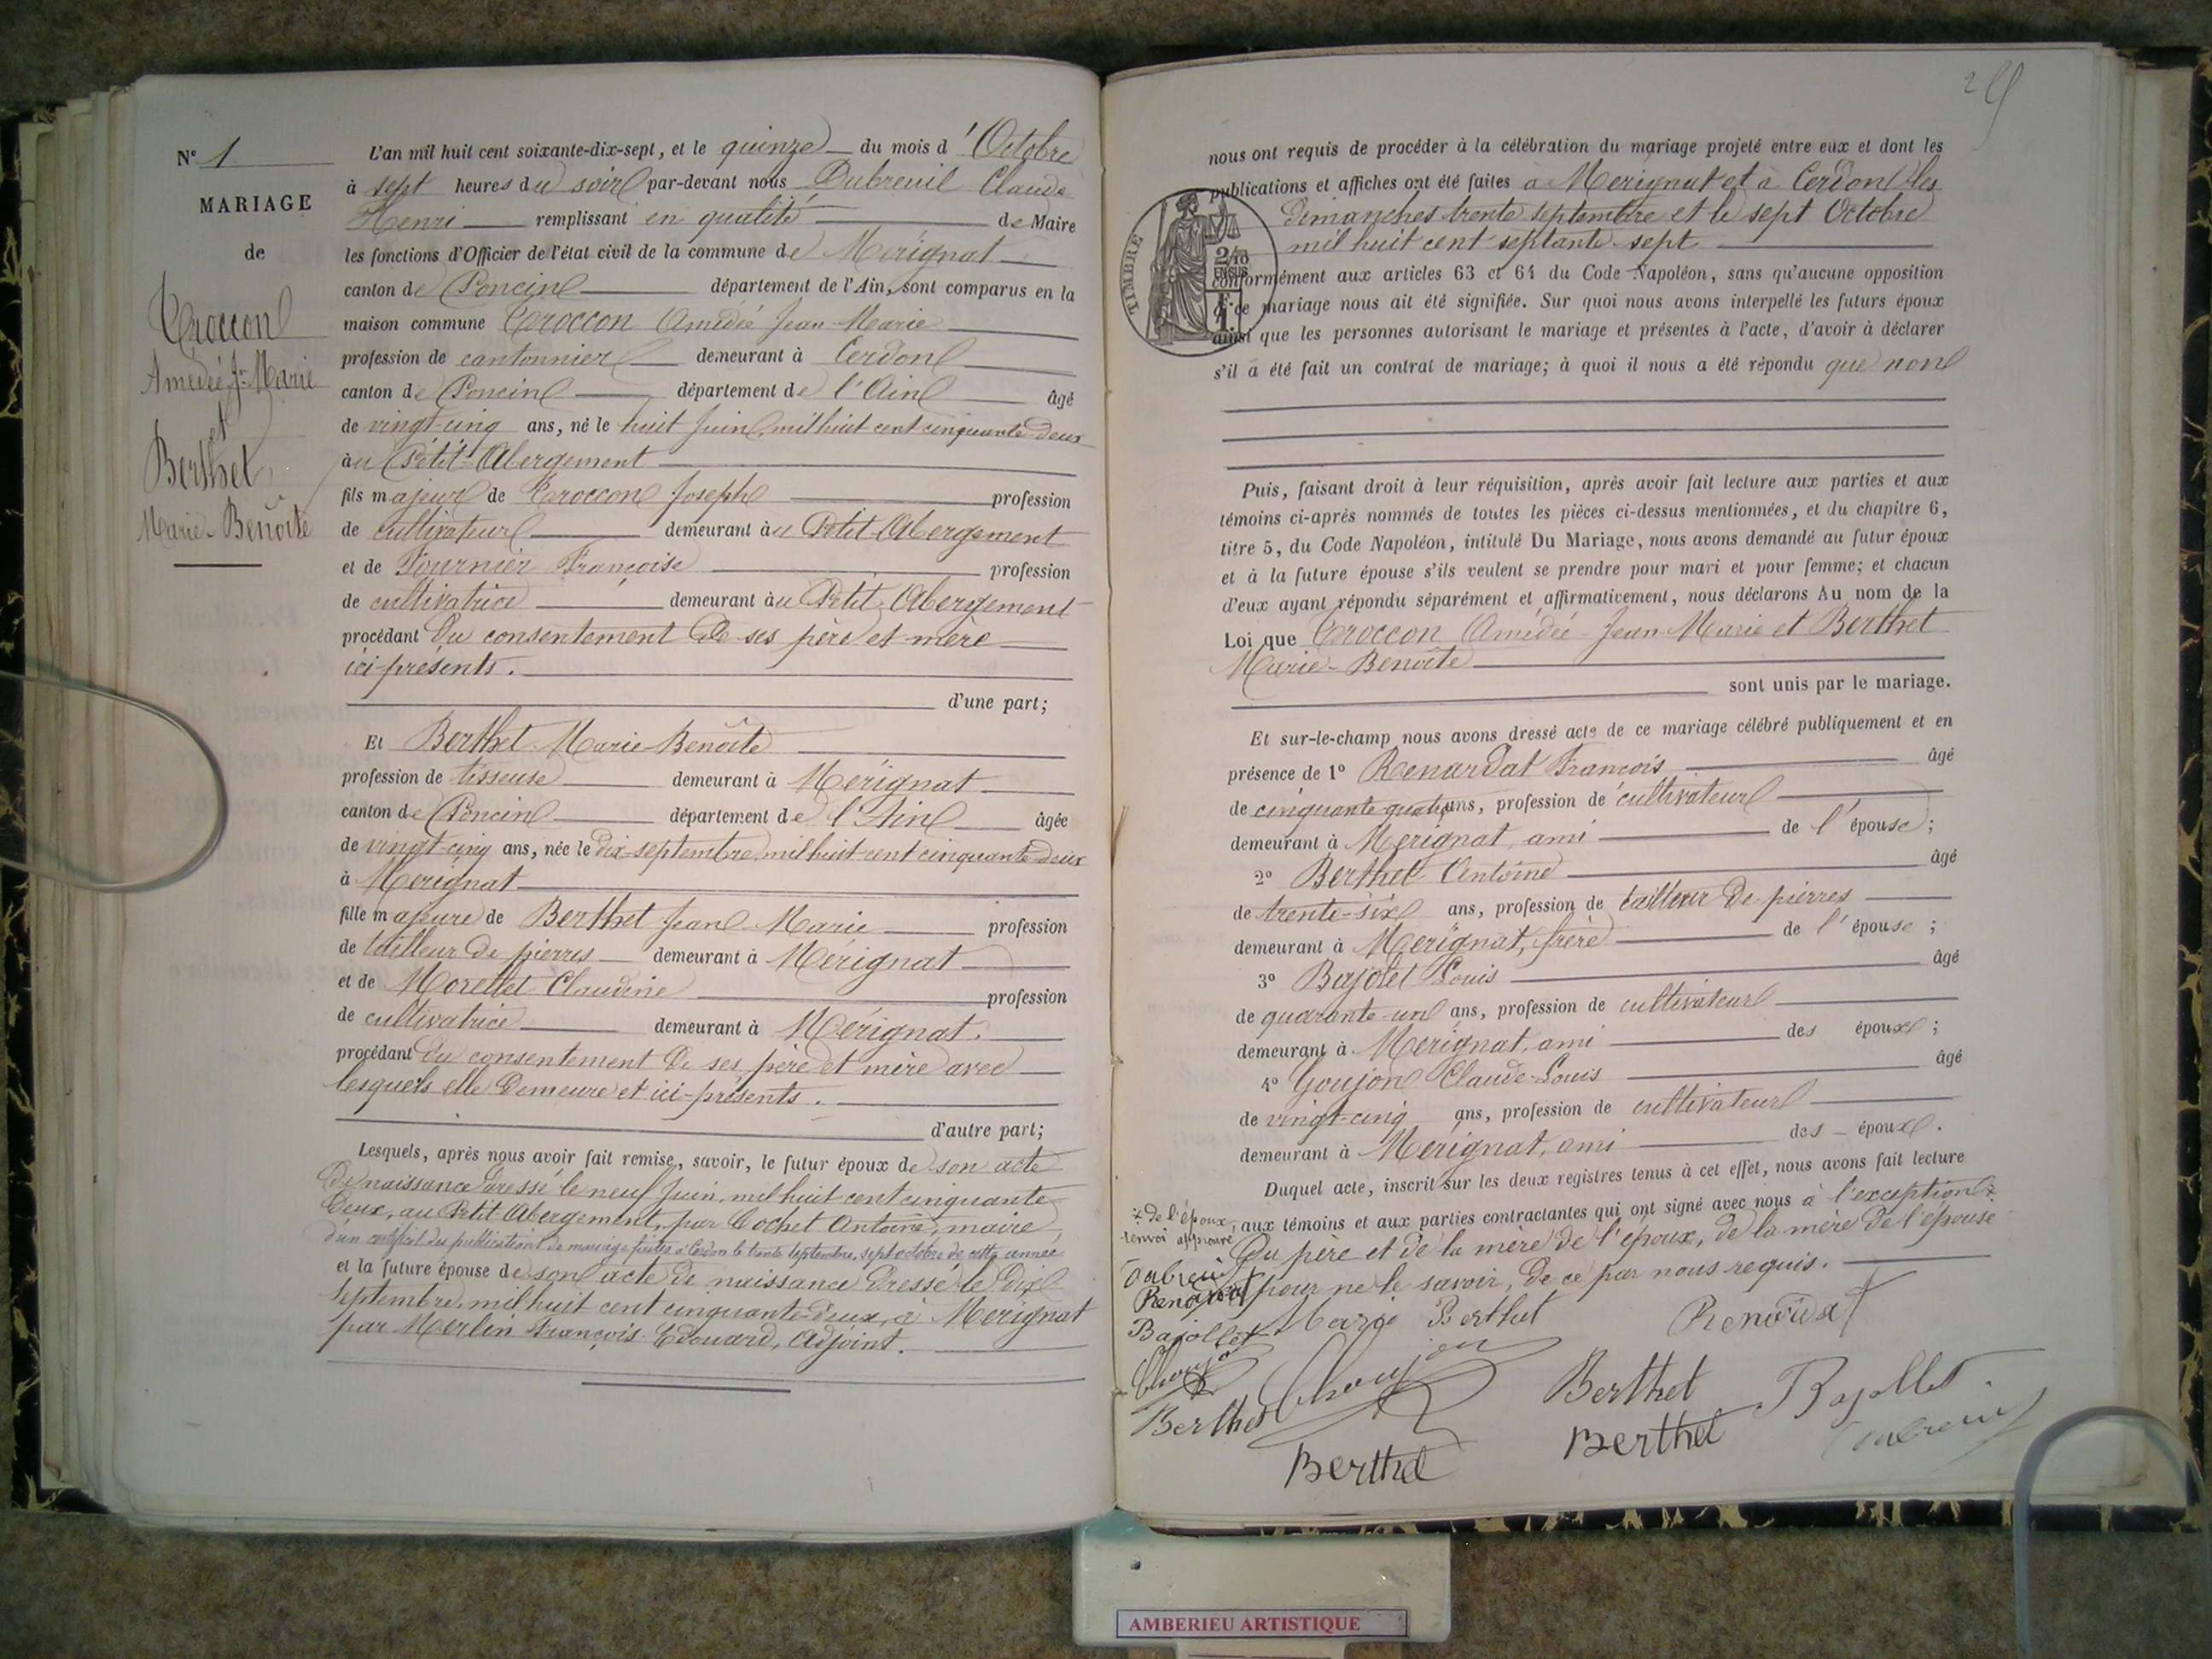 N° 1
MARIAGE
de
Croccon
Amédée Jn Marie
et
Berthet
Marie-Benoîte
L'an mil huit cent soixante-dix-sept, et le quinze du mois d'Octobre
à sept heures du soir par-devant nous Dubreuil Claude
Henri remplissant en qualité de Maire
les fonctions d'Officier de l'état civil de la commune de Mérignat
canton de Poncin département de l'Ain, sont comparus en la
maison commune Croccon Amédée Jean-Marie
profession de cantonnier demeurant à Cerdon
canton de Poncin département de l'Ain âgé
de vingt-cinq ans, né le huit Juin, mil huit cent cinquante-deux
au Petit-Abergement
fils majeur de Croccon Joseph profession
de cultivateur demeurant au Petit-Abergement
et de Fournier Françoise profession
de cultivatrice demeurant au Petit-Abergement
procédant du consentement de ses père et mère
ici-présents.
d'une part;
Et Berthet Marie-Benoîte
profession de tisseuse demeurant à Mérignat
canton de Poncin département de l'Ain âgée
de vingt-cinq ans, née le dix-septembre mil huit cent cinquante-deux
à Mérignat
fille majeure de Berthet Jean-Marie profession
de tailleur de pierres demeurant à Mérignat
et de Morellet Claudine profession
de cultivatrice demeurant à Mérignat.
procédant du consentement de ses père et mère avec
lesquels elle demeure et ici-présents.
d'autre part;
Lesquels, après nous avoir fait remise, savoir, le futur époux de son acte
de naissance dressé le neuf Juin, mil huit cent cinquante-
deux, au Petit-Abergement, par Cochet Antoine, maire,
d'un certificat des publications de mariage faites à Cerdon le trente septembre, sept octobre de cette année
et la future épouse de son acte de naissance dressé le dix
septembre, mil huit cent cinquante-deux, à Mérignat
par Merlin François Edouard, Adjoint.
nous ont requis de procéder à la célébration du mariage projeté entre eux et dont les
publications et affiches ont été faites à Mérignat et à Cerdon les
dimanches trente septembre et le sept Octobre
mil huit cent septante-sept
TIMBRE
2/10
EN SUS
conformément aux articles 63 et 64 du Code Napoléon, sans qu'aucune opposition
à ce mariage nous ait été signifiée. Sur quoi nous avons interpellé les futurs époux
ainsi que les personnes autorisant le mariage et présentes à l'acte, d'avoir à déclarer
s'il a été fait un contrat de mariage; à quoi il nous a été répondu que non
Puis, faisant droit à leur réquisition, après avoir fait lecture aux parties et aux
témoins ci-après nommés de toutes les pièces ci-dessus mentionnées, et du chapitre 6,
titre 5, du Code Napoléon, intitulé Du Mariage, nous avons demandé au futur époux
et à la future épouse s'ils veulent se prendre pour mari et pour femme; et chacun
d'eux ayant répondu séparément et affirmativement, nous déclarons Au nom de la
Loi que Croccon Amédée-Jean-Marie et Berthet
Marie-Benoîte
sont unis par le mariage.
Et sur-le-champ nous avons dressé acte de ce mariage célébré publiquement et en
présence de 1° Renardat François âgé
de cinquante-quatre ans, profession de cultivateur
demeurant à Mérignat, ami de l'épouse;
2° Berthet Antoine âgé
de trente-six ans, profession de tailleur de pierres
demeurant à Mérignat, frère de l'épouse;
3° Bajolet Louis âgé
de quarante-un ans, profession de cultivateur
demeurant à Mérignat, ami des époux;
4° Goujon Claude-Louis âgé
de vingt-cinq ans, profession de cultivateur
demeurant à Mérignat, ami des époux.
Duquel acte, inscrit sur les deux registres tenus à cet effet, nous avons fait lecture
aux témoins et aux parties contractantes qui ont signé avec nous à l'exception
* de l'époux,
renvoi approuvé
du père et de la mère de l'époux, de la mère de l'épouse
pour ne le savoir, de ce par nous requis.
Dubreuil
Renardat
Bajollet
Berthet
Marie Berthet
Renardat
Berthet
Bajollet
Berthet
Berthet
Dubreuil
AMBERIEU ARTISTIQUE